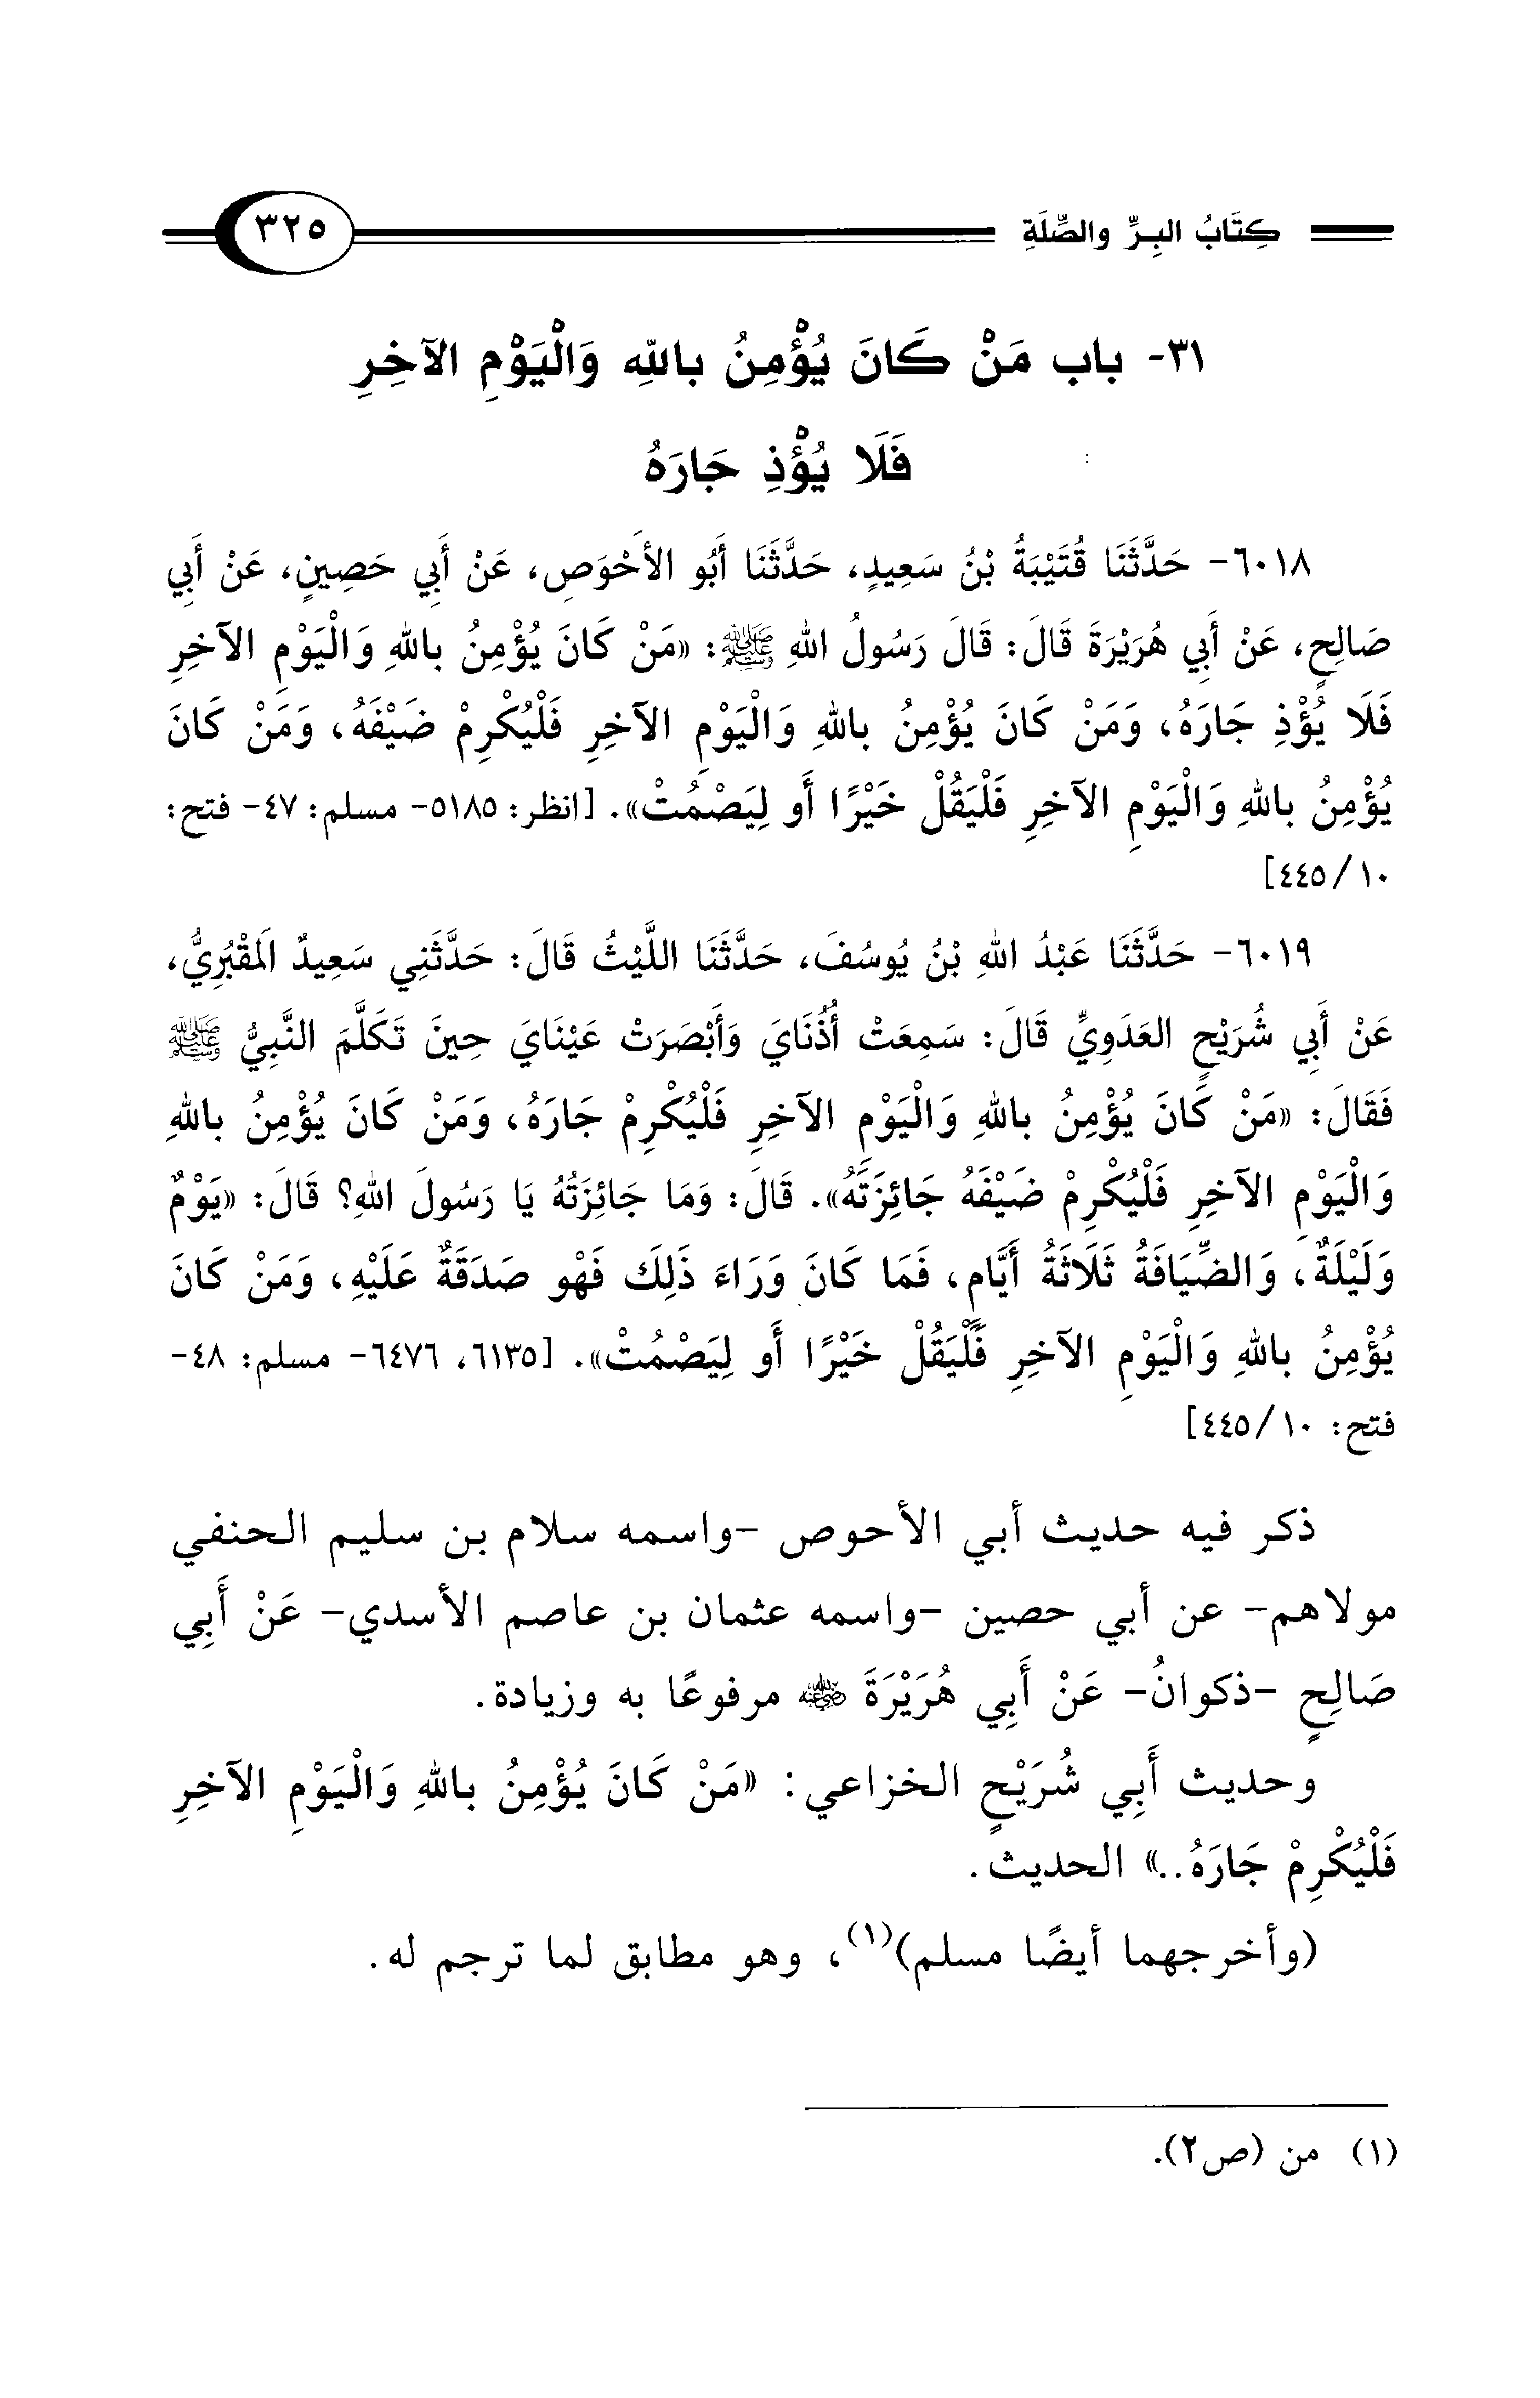 كِتَابُ البِرِّ والصِّلَةِ ٣٢٥
٣١- باب مَنْ كَانَ يُؤْمِنُ باللهِ وَالْيَوْمِ الآخِرِ
فَلَا يُؤْذِ جَارَهُ
٦٠١٨- حَدَّثَنَا قُتَيْبَةُ بْنُ سَعِيدٍ، حَدَّثَنَا أَبُو الأَحْوَصِ، عَنْ أَبِي حَصِينٍ، عَنْ أَبِي
صَالِحٍ، عَنْ أَبِي هُرَيْرَةَ قَالَ: قَالَ رَسُولُ اللهِ ﷺ: «مَنْ كَانَ يُؤْمِنُ باللهِ وَالْيَوْمِ الآخِرِ
فَلَا يُؤْذِ جَارَهُ، وَمَنْ كَانَ يُؤْمِنُ باللهِ وَالْيَوْمِ الآخِرِ فَلْيُكْرِمْ ضَيْفَهُ، وَمَنْ كَانَ
يُؤْمِنُ باللهِ وَالْيَوْمِ الآخِرِ فَلْيَقُلْ خَيْرًا أَو لِيَصْمُتْ». [انظر: ٥١٨٥- مسلم: ٤٧- فتح:
١٠/ ٤٤٥]
٦٠١٩- حَدَّثَنَا عَبْدُ اللهِ بْنُ يُوسُفَ، حَدَّثَنَا اللَّيْثُ قَالَ: حَدَّثَنِي سَعِيدٌ الَمقْبُرِيُّ،
عَنْ أَبِي شُرَيْحٍ العَدَوِيِّ قَالَ: سَمِعَتْ أُذُنَايَ وَأَبْصَرَتْ عَيْنَايَ حِينَ تَكَلَّمَ النَّبِيُّ ﷺ
فَقَالَ: «مَنْ كَانَ يُؤْمِنُ باللهِ وَالْيَوْمِ الآخِرِ فَلْيُكْرِمْ جَارَهُ، وَمَنْ كَانَ يُؤْمِنُ باللهِ
وَالْيَوْمِ الآخِرِ فَلْيُكْرِمْ ضَيْفَهُ جَائِزَتَهُ». قَالَ: وَمَا جَائِزَتُهُ يَا رَسُولَ اللهِ؟ قَالَ: «يَوْمٌ
وَلَيْلَةٌ، وَالضِّيَافَةُ ثَلَاثَةُ أَيَّامٍ، فَمَا كَانَ وَرَاءَ ذَلِكَ فَهْو صَدَقَةٌ عَلَيْهِ، وَمَنْ كَانَ
يُؤْمِنُ باللهِ وَالْيَوْمِ الآخِرِ فَلْيَقُلْ خَيْرًا أَو لِيَصْمُتْ». [٦١٣٥، ٦٤٧٦- مسلم: ٤٨-
فتح: ١٠/ ٤٤٥]
ذكر فيه حديث أبي الأحوص -واسمه سلام بن سليم الحنفي
مولاهم- عن أبي حصين -واسمه عثمان بن عاصم الأسدي- عَنْ أَبِي
صَالِحٍ -ذكوانُ- عَنْ أَبِي هُرَيْرَةَ رضي الله عنه مرفوعًا به وزيادة.
وحديث أَبِي شُرَيْحٍ الخزاعي: «مَنْ كَانَ يُؤْمِنُ باللهِ وَالْيَوْمِ الآخِرِ
فَلْيُكْرِمْ جَارَهُ..» الحديث.
(وأخرجهما أيضًا مسلم)(١)، وهو مطابق لما ترجم له.
(١) من (ص٢).